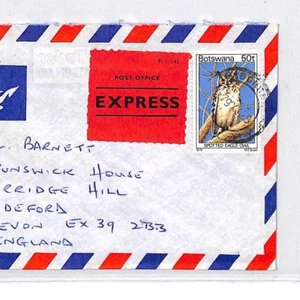 POST OFFICE
EXPRESS
Botswana 50t
SPOTTED EAGLE OWL
BARNETT
UNSWICK HOUSE
RRIDGE HILL
DEFORD
EVON EX39 2BB
ENGLAND